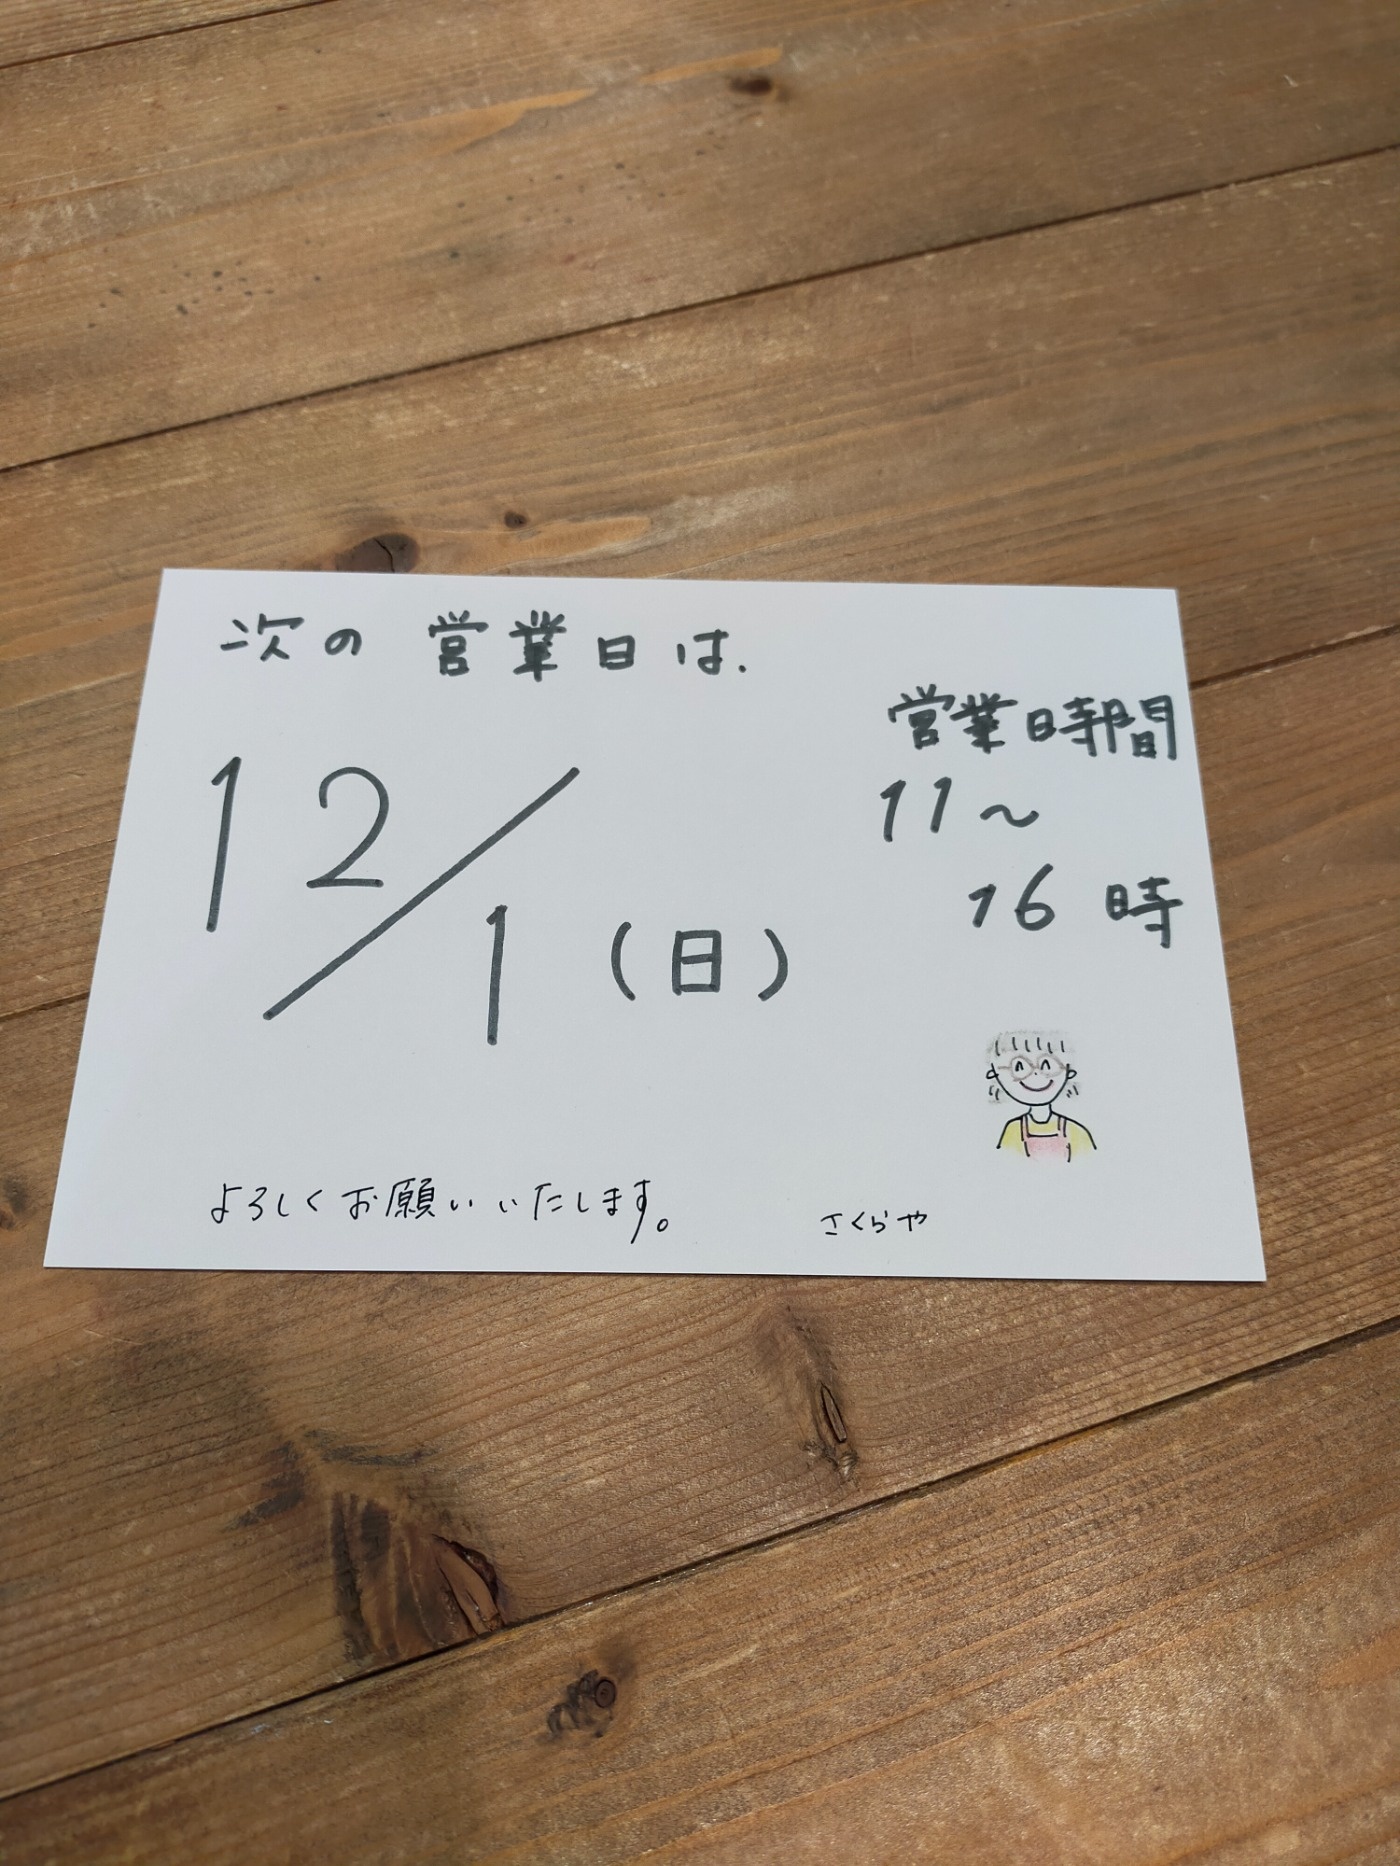 次の営業日は.
12/1(日)
営業日時間
11〜
16時
よろしくお願いいたします。
さくらや